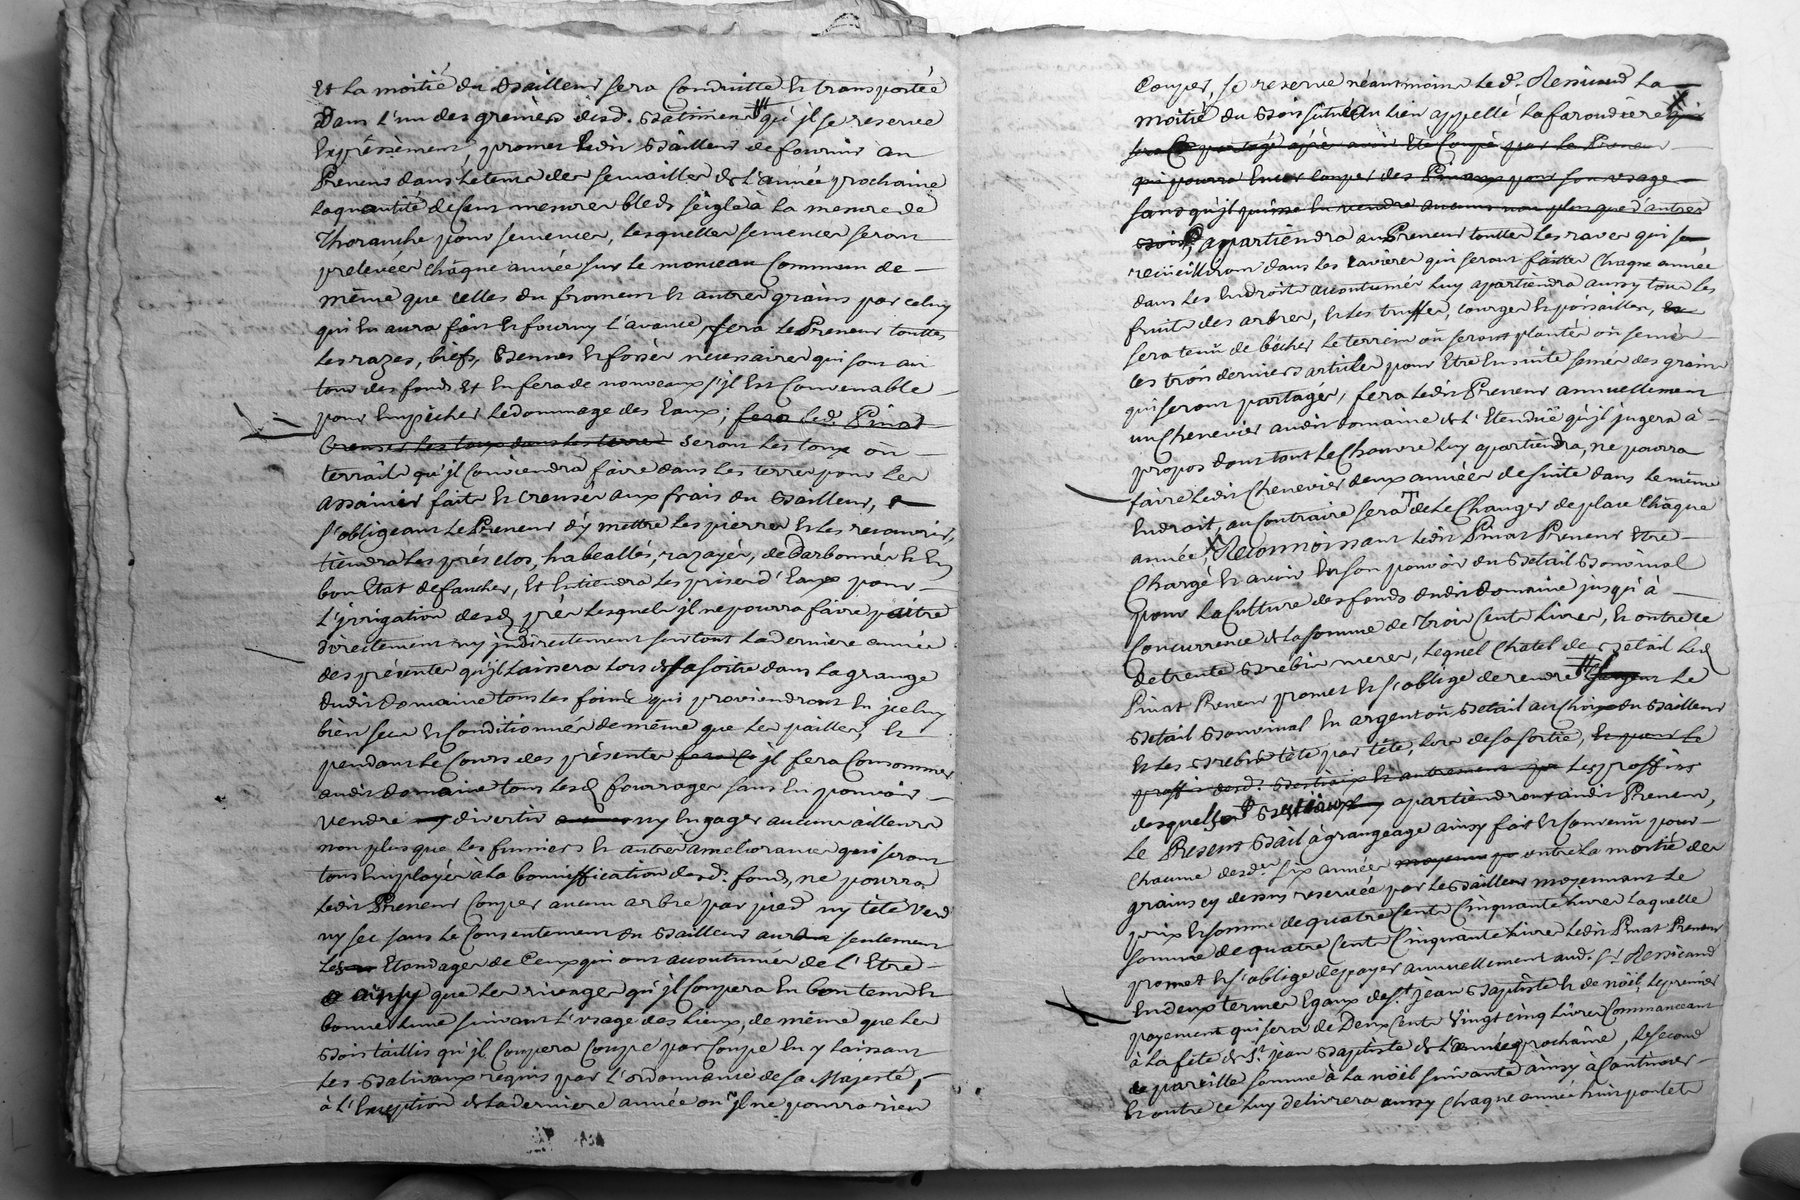 Et la moitié du Bailleur sera Conduitte et transportée
Dans l'un des greniers desd. Batimens # qu'jl se reserve
Expressément, promet ledit Bailleur de fournir au
Preneur dans le tems des semailles de l'année prochaine
la quantité de cent mesures bleds seigle a la mesure de
Thoranche pour semences, lesquelles semences seront
prelevées chàque année sur le monceau Commun de
même que celles du froment et autres grains par celuy
qui en aura fait et fourny l'avance, fera le Preneur touttes
les razes, biefs, Bennes et fossés nécessaires qui sont au
tour des fonds et en fera de nouveaux s'jl Est Convenable
pour Empècher le dommage des Eaux; fera led. Pinat
Creuser les toux dans les terres seront les toux où
terraile qu'jl Conviendra faire dans les terres pour les
assainir faits et Creusés aux frais du Bailleur, et
s'obligeant le Preneur d'y mettre les pierres et les recouvrir,
tiendra les prés clos, habeallés, razayés, dedarbonnés et En
bon Etat de faucher, Et Entiendra les prises d'Eaux pour
l'jrrigation desd. prés lesquels jl ne pourra faire paitre
directement ny jndirectement surtout la derniere année
des présentes qu'jl laissera lors de sa sortie dans la grange
dudit Domaine tous les foins qui proviendront En jceluy
bien secs et Conditionnés de même que les pailles, et
pendant le Cours des présentes jl fera Consommer
audit domaine tous lesd. fourrages sans En pouvoir
vendre ny divertir ny Engager aucuns ailleurs
non plus que les fumiers et autres ameliorances qui seront
tous Employés à la bonniffication desd. fonds, ne pourra
ledit Preneur Couper aucun arbre par pied ny tète verd
ny sec sans le Consentement du Bailleur seulement
les Etondages de Ceux qui ont accoutumés de l'Etre
ainsy que les rivages qu'jl Coupera En bon tems et
bonne lune suivant l'usage des lieux, de même que les
Bois taillis qu'jl Coupera Coupe par Coupe En y laissant
les Balivaux requis par l'ordonnance de sa Majesté,
à l'Exeption de la derniere année où jl ne pourra rien
Couper, se reserve néantmoins led. Sr. Ressicaud la
moitié du Bois situé Au lieu appellé la faroudiere # qui
sera partagé après avoir Eté Coupé par le Preneur
qui pourra Encor Couper des Pinaux pour son usage
sans qu'jl puisse En vendre aucuns non plus que d'autres
Bois, appartiendra au Preneur touttes les raves qui se
recüeilliront dans les ravieres qui seront faittes Chaque année
dans les Endroits accoutumés luy apartiendra aussy tous les
fruits des arbres, et les truffes, courges et poisailles, et
sera tenû de bécher le terrein où seront plantés où semés
ces trois derniers articles pour Etre Ensuite semés des grains
qui seront partagés, fera ledit Preneur annuellement
un Chenevier audit domaine de l'Etendüe qu'jl jugera à
propos dont tout le Chanvre luy apartiendra, ne pourra
faire ledit Chenevier deux années de suite dans le même
Endroit, au Contraire sera T de le Changer de place Chàque
année, Reconnoissant ledit Pinat Preneur Etre
Chargé et avoir En son pouvoir du Betail Bovinal
pour la Culture des fonds dudit domaine jusqu'à
Concurrence de la somme de Trois Cents livres, et outre ce
de trente Brebis meres, lequel Chatel de Betail led.
Pinat Preneur promet et s'oblige de rendre # le
Betail Bovinal En argent où Betail au Choix du Bailleur
et les Brebis tète par tète, lors de sa sortie, et pour le
proffit desd. Bestiaux et autrement les proffits
desquels Bestiaux apartiendront audit Preneur,
le Present Bail à grangeage ainsy fait et Convenû pour
Chacune desd. six années outre la moitié des
grains cy dessus reservée par le Bailleur moyennant le
prix et somme de quatre Cents Cinquante livres laquelle
somme de quatre Cents Cinquante livres ledit Pinat Preneur
promet et s'oblige de payer annuellement aud. Sr. Ressicaud
En deux termes Egaux de St. Jean Baptiste et de nöel, le premier
payement qui sera de Deux Cents Vingt cinq livres Commanceant
à la fète de St. jean Baptiste de l'année prochaine, le second
de pareille somme à la nöel suivante ainsy à Continuer
Et outre ce luy délivrera aussy Chaque année